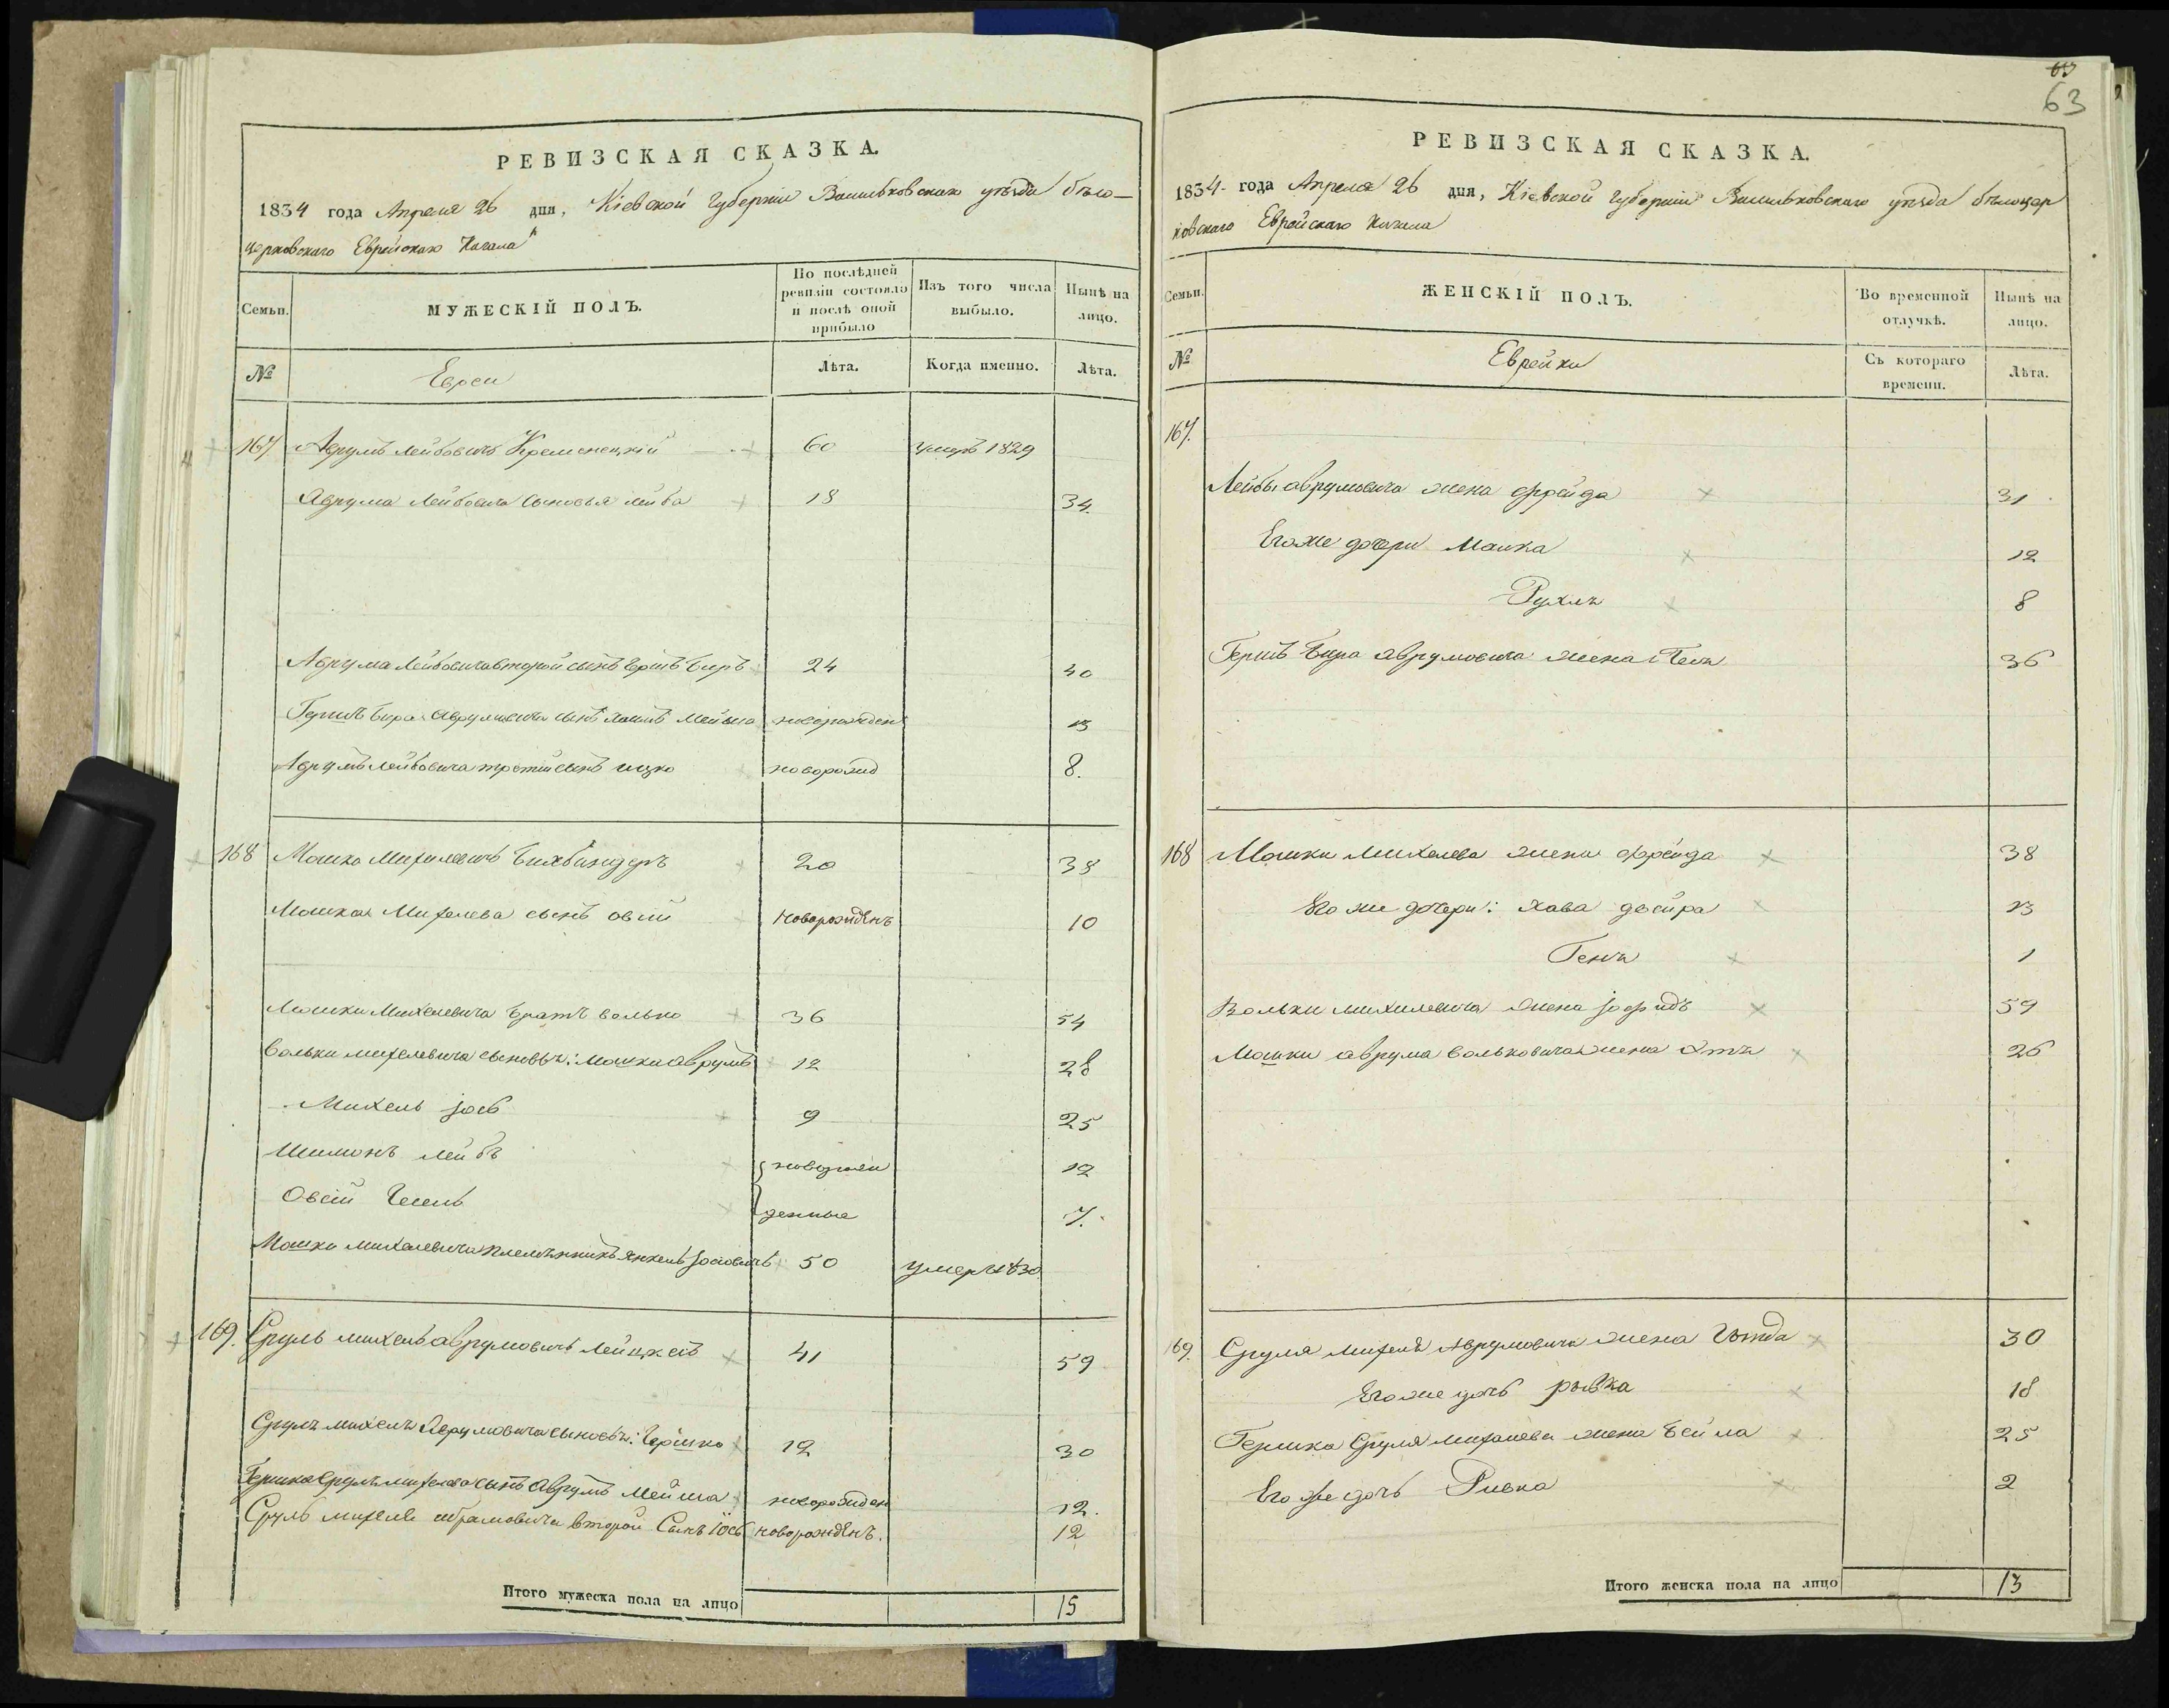 РЕВИЗСКАЯ СКАЗКА.
1834 года Апреля 26 дня, Кіевской Губерніи Васильковскаго уѣзда бѣло-
церковскаго Еврейскаго Кагала
Семьи.
МУЖЕСКІЙ ПОЛЪ.
По послѣдней ревизіи состояло и послѣ оной прибыло
Изъ того числа выбыло.
Нынѣ на лицо.
№
Евреи
Лѣта.
Когда именно.
Лѣта.
167 Аврумъ Лейбовичъ Кременецкій 60 умеръ 1829
Аврума Лейбовича сыновья лейба 18 34.
Аврума Лейбовича второй сынъ Гершъ Беръ 24 40
Гершъ Бера Аврумовича сынъ новорожден 13
Аврумъ Лейбовича третій сынъ ицко новорожд 8.
168 Мошко Михелевичъ 20 38
Мошка Михелева сынъ овсій новорожденъ 10
Мошки Михелевича братъ волько 36 54
Вольки михелевича сыновья: Мошка аврумъ 12 28
Михель јось 9 25
Шимонъ лейбъ новорож 12
Овсій денные 7.
Мошки михелевича племянникъ янкель јосіовичъ 50 умеръ 1830
169. Сруль михель аврумовичъ 41 59
Сруль михель Аврумовича сыновья: Гершко 12 30
Гершка Сруль михелева сынъ Аврумъ Мейша новорожден 12.
Сруль михеля абрамовича второй Сынъ Іось новорожденъ. 12
Итого мужеска пола на лицо 15
63
63
РЕВИЗСКАЯ СКАЗКА.
1834 года Апреля 26 дня, Кіевской Губерніи Васильковскаго уѣзда бѣлоцер
ковскаго Еврейскаго Кагала
Семьи.
ЖЕНСКІЙ ПОЛЪ.
Во временной отлучкѣ.
Нынѣ на лицо.
№
Еврейки
Съ котораго времени.
Лѣта.
167.
Лейбы аврумовича жена фрейда 31
Его же дочери Малка 12
Рухля 8
Гершъ Бера аврумовича жена 36
168 Мошки михелева жена фрейда 38
Его же дочери: хава двейра 13
Геня 1
Вольки михилевича жена 59
Мошки аврума вольковича жена 26
169. Сруля михеля Аврумовича жена 30
Его же дочь рывка 18
Гершка Сруля михелева жена Бейла 25
Его же дочь Ривка 2
Итого женска пола на лицо 13